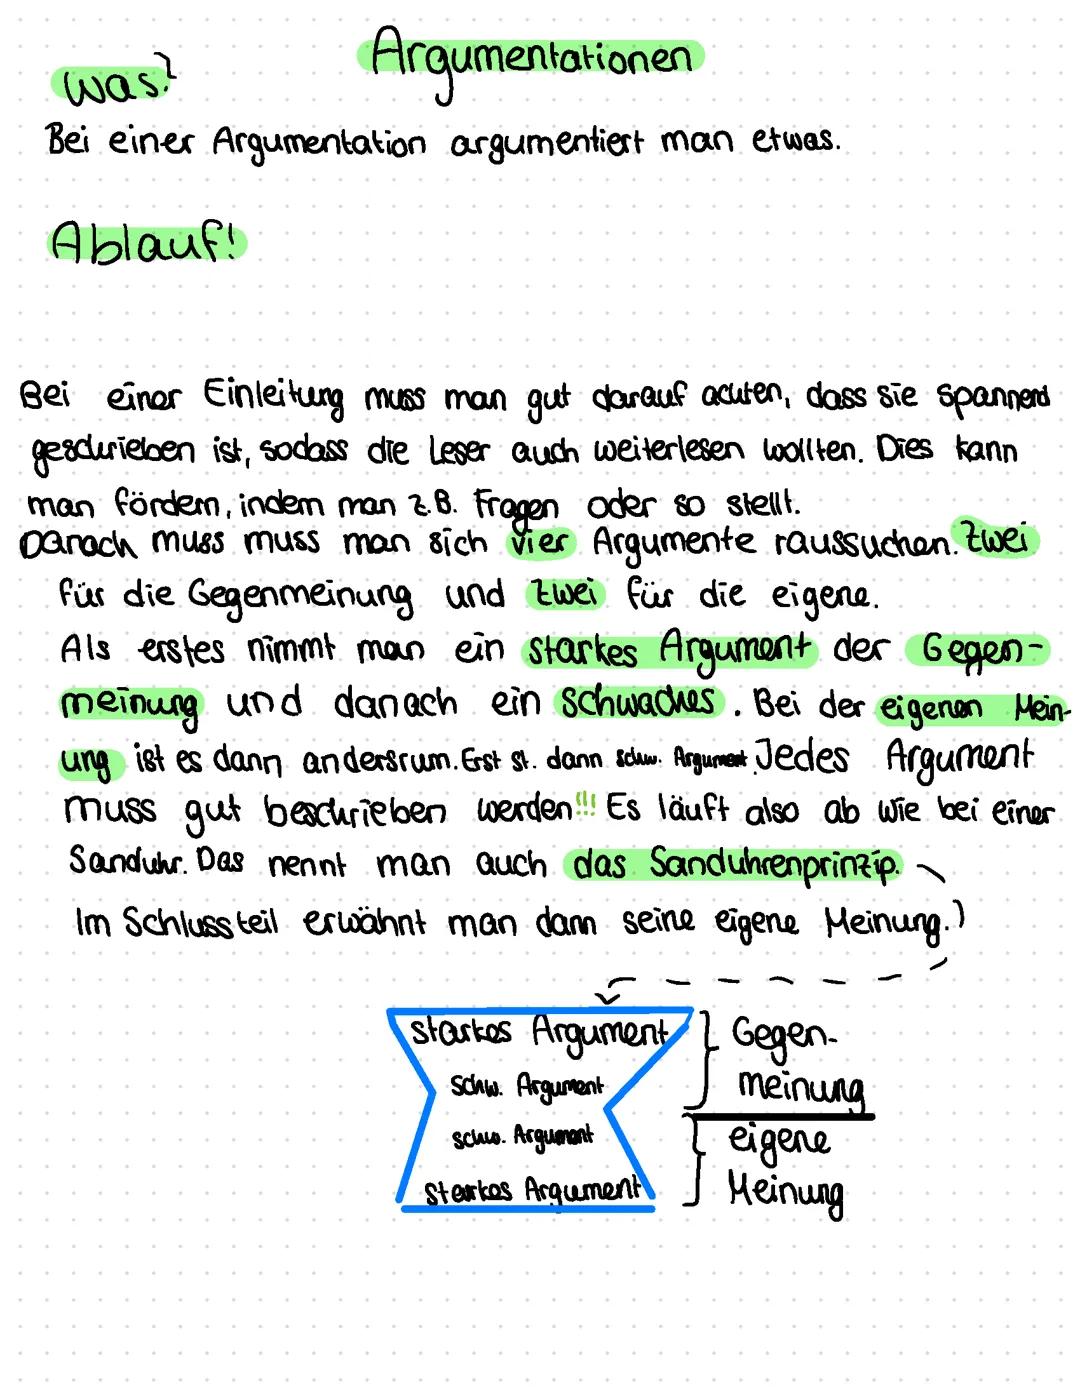 Argumentationen
Was?
Bei einer Argumentation argumentiert man etwas.
Ablauf!
Bei einer Einleitung muss man gut darauf achten, dass sie spannend
geschrieben ist, sodass die Leser auch weiterlesen wollten. Dies kann
man fördern, indem man z.B. Fragen oder so stellt.
Danach muss muss man sich vier Argumente raussuchen. Zwei
für die Gegenmeinung und zwei für die eigene.
Als erstes nimmt man ein starkes Argument der Gegen-
meinung und danach ein schwaches. Bei der eigenen Mein-
ung ist es dann andersrum. Erst st. dann schw. Argument. Jedes Argument
muss gut beschrieben werden!!! Es läuft also ab wie bei einer
Sanduhr. Das nennt man auch das Sanduhrenprinzip.
Im Schlussteil erwähnt man dann seine eigene Meinung.
starkes Argument
schw. Argument
schw. Argument
starkes Argument
Gegen-
meinung
eigene
Meinung